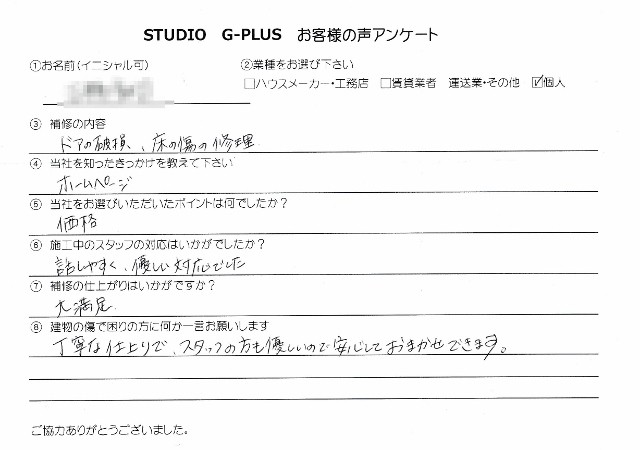 STUDIO G-PLUS お客様の声アンケート
①お名前(イニシャル可) ②業種をお選び下さい
□ハウスメーカー・工務店 □賃貸業者 運送業・その他 ☑個人
③ 補修の内容
ドアの破損、床の傷の修理
④ 当社を知ったきっかけを教えて下さい
ホームページ
⑤ 当社をお選びいただいたポイントは何でしたか?
価格
⑥ 施工中のスタッフの対応はいかがでしたか?
話しやすく、優しい対応でした
⑦ 補修の仕上がりはいかがですか?
大満足
⑧ 建物の傷で困りの方に何か一言お願いします
丁寧な仕上りで、スタッフの方も優しいので安心しておまかせできます。
ご協力ありがとうございました。